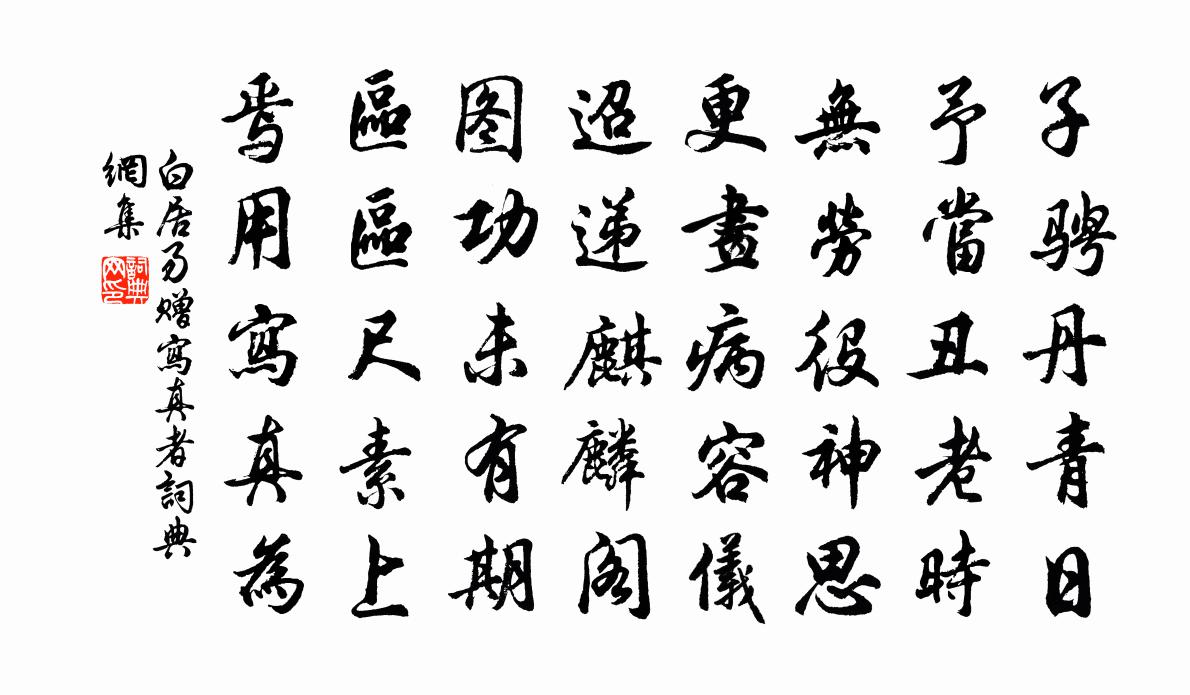 子骋丹青日
予當丑老時
無勞役神思
更畫病容儀
迢递麒麟阁
图功未有期
區區尺素上
焉用寫真為
白居易赠寫真者詞典
網集
詞典
网印